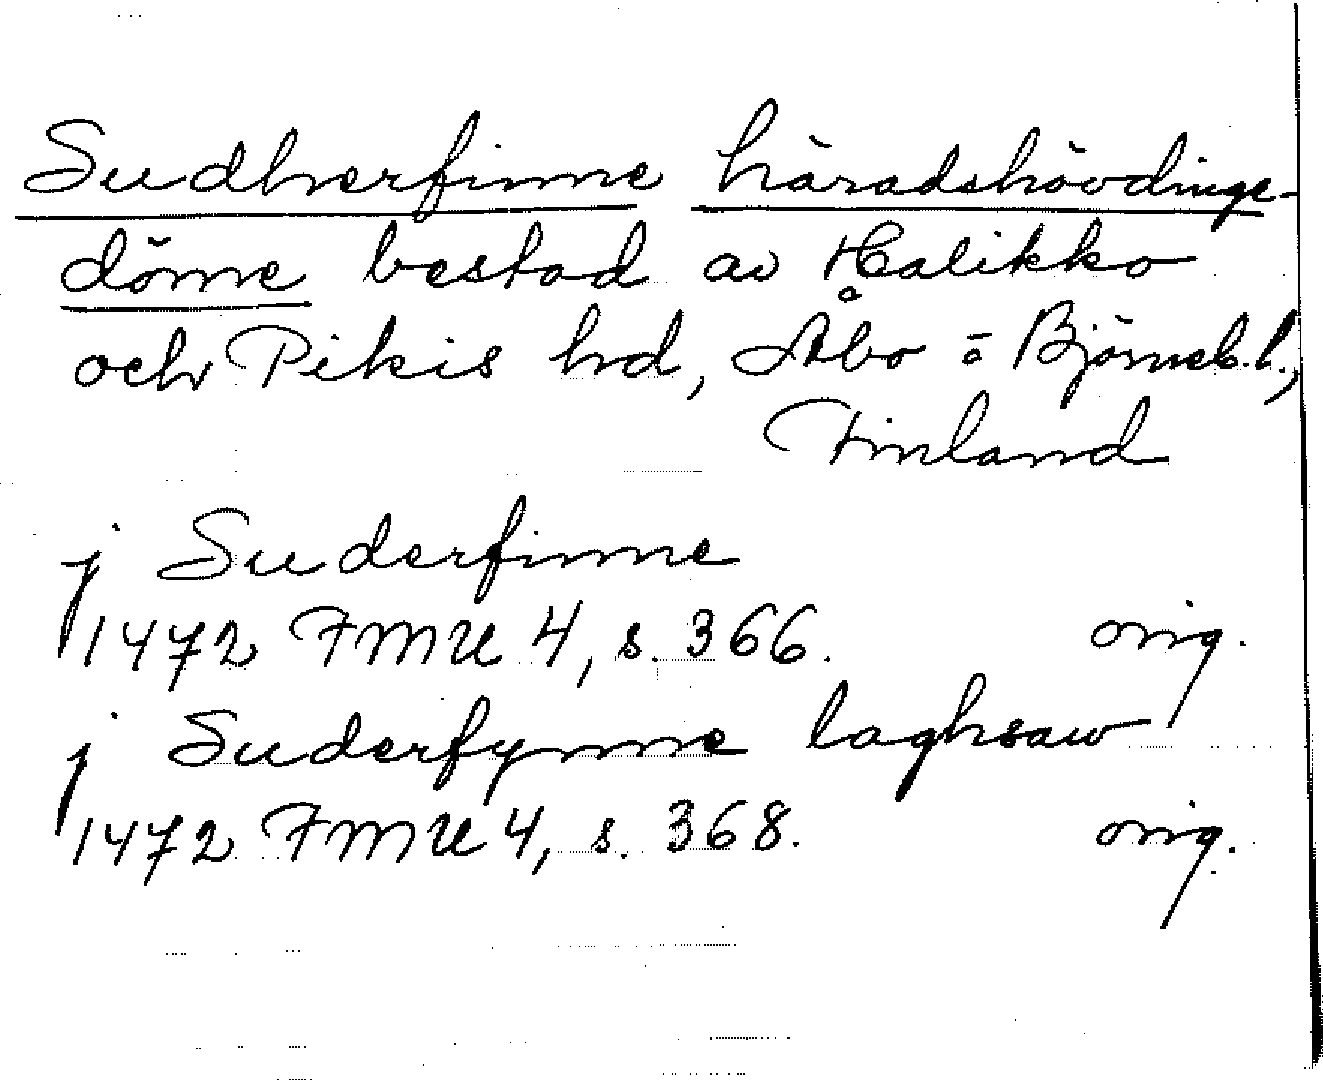 Sudherfinne häradshövdinge-
döme bestod av Halikko
och Pikis hd, Åbo o Björneb. l.,
Finland
j Suderfinne
1472 FMU 4, s. 366. orig.
j Suderfynne laghsaw
1472 FMU 4, s. 368. orig.